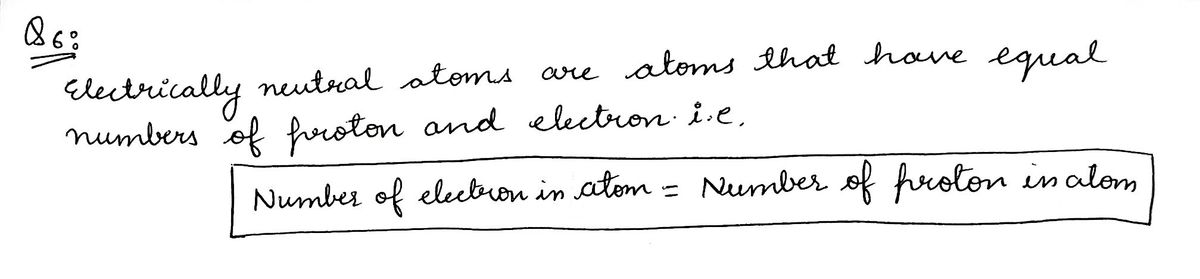 Q6:
Electrically neutral atoms are atoms that have equal
numbers of proton and electron. i.e.
Number of electron in atom = Number of proton in atom